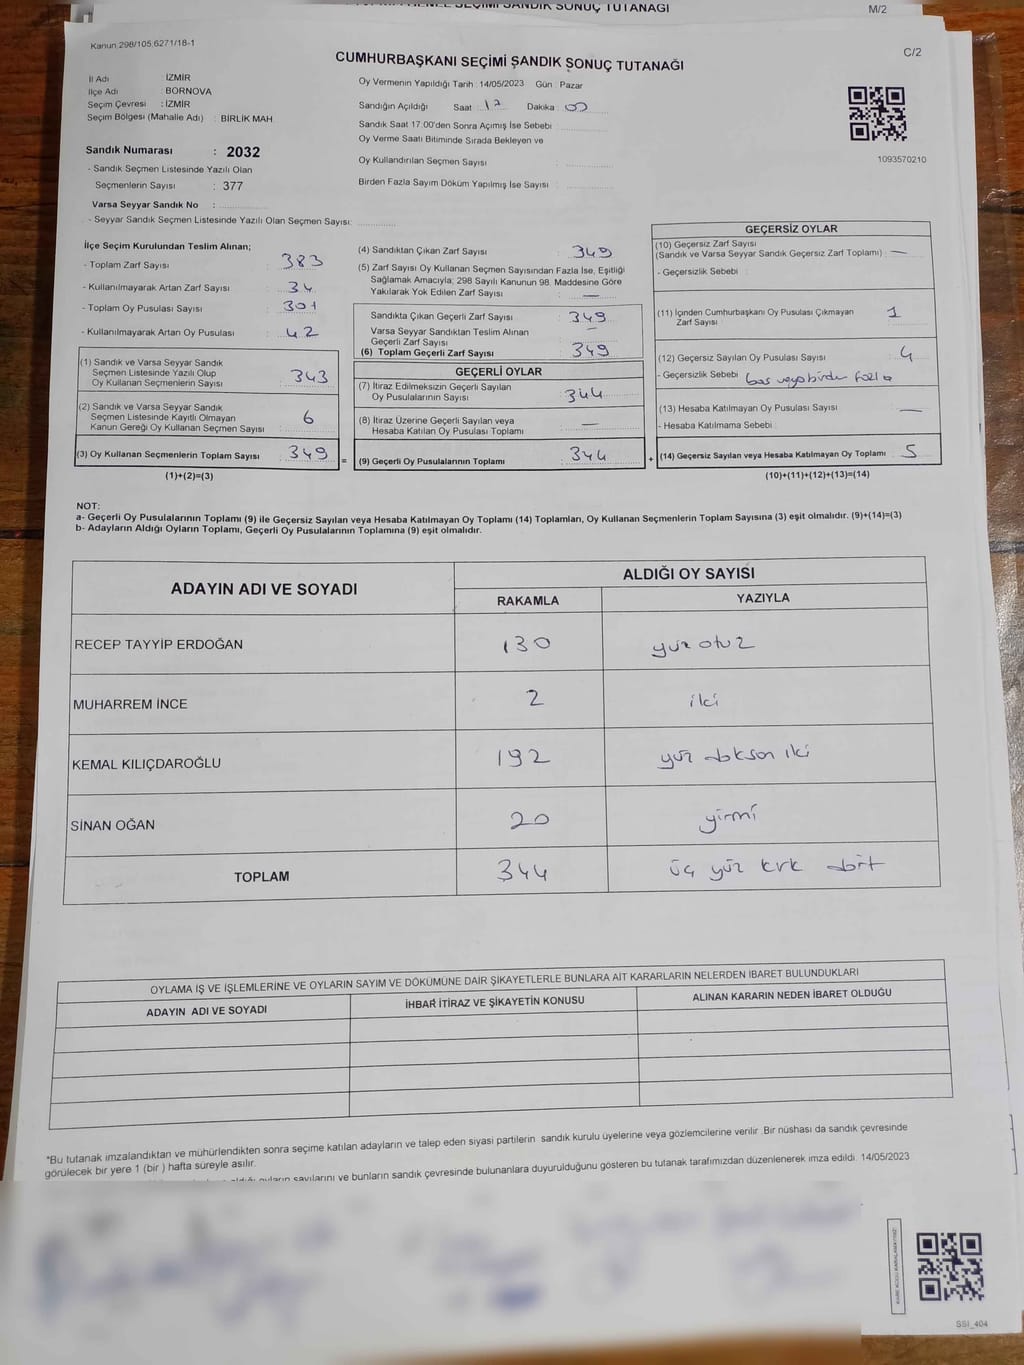 CUMHURBAŞKANI SEÇİMİ SANDIK SONUÇ TUTANAĞI
M/2
Kanun 298/105.6271/18-1
C/2
CUMHURBAŞKANI SEÇİMİ SANDIK SONUÇ TUTANAĞI
İl Adı İZMİR
İlçe Adı BORNOVA
Seçim Çevresi : İZMİR
Seçim Bölgesi (Mahalle Adı) : BİRLİK MAH.
Sandık Numarası : 2032
- Sandık Seçmen Listesinde Yazılı Olan
Seçmenlerin Sayısı : 377
Varsa Seyyar Sandık No :
- Seyyar Sandık Seçmen Listesinde Yazılı Olan Seçmen Sayısı:
Oy Vermenin Yapıldığı Tarih : 14/05/2023 Gün : Pazar
Sandığın Açıldığı Saat : 17 Dakika : 00
Sandık Saat 17.00'den Sonra Açımış İse Sebebi :
Oy Verme Saati Bitiminde Sırada Bekleyen ve
Oy Kullandırılan Seçmen Sayısı :
Birden Fazla Sayım Döküm Yapılmış İse Sayısı :
1093570210
İlçe Seçim Kurulundan Teslim Alınan;
- Toplam Zarf Sayısı : 383
- Kullanılmayarak Artan Zarf Sayısı : 34
- Toplam Oy Pusulası Sayısı :
- Kullanılmayarak Artan Oy Pusulası : 42
(1) Sandık ve Varsa Seyyar Sandık
Seçmen Listesinde Yazılı Olup
Oy Kullanan Seçmenlerin Sayısı : 343
(2) Sandık ve Varsa Seyyar Sandık
Seçmen Listesinde Kayıtlı Olmayan
Kanun Gereği Oy Kullanan Seçmen Sayısı : 6
(3) Oy Kullanan Seçmenlerin Toplam Sayısı : 349
(1)+(2)=(3)
(4) Sandıktan Çıkan Zarf Sayısı : 349
(5) Zarf Sayısı Oy Kullanan Seçmen Sayısından Fazla İse, Eşitliği
Sağlamak Amacıyla; 298 Sayılı Kanunun 98. Maddesine Göre
Yakılarak Yok Edilen Zarf Sayısı : —
Sandıkta Çıkan Geçerli Zarf Sayısı : 349
Varsa Seyyar Sandıktan Teslim Alınan
Geçerli Zarf Sayısı : —
(6) Toplam Geçerli Zarf Sayısı : 349
GEÇERLİ OYLAR
(7) İtiraz Edilmeksizin Geçerli Sayılan
Oy Pusulalarının Sayısı : 344
(8) İtiraz Üzerine Geçerli Sayılan veya
Hesaba Katılan Oy Pusulası Toplamı : —
= (9) Geçerli Oy Pusulalarının Toplamı : 344
GEÇERSİZ OYLAR
(10) Geçersiz Zarf Sayısı
(Sandık ve Varsa Seyyar Sandık Geçersiz Zarf Toplamı) : —
- Geçersizlik Sebebi :
(11) İçinden Cumhurbaşkanı Oy Pusulası Çıkmayan
Zarf Sayısı : 1
(12) Geçersiz Sayılan Oy Pusulası Sayısı : 4
- Geçersizlik Sebebi : boş veya birden fazla
(13) Hesaba Katılmayan Oy Pusulası Sayısı : —
- Hesaba Katılmama Sebebi :
+ (14) Geçersiz Sayılan veya Hesaba Katılmayan Oy Toplamı : 5
(10)+(11)+(12)+(13)=(14)
NOT:
a- Geçerli Oy Pusulalarının Toplamı (9) ile Geçersiz Sayılan veya Hesaba Katılmayan Oy Toplamı (14) Toplamları, Oy Kullanan Seçmenlerin Toplam Sayısına (3) eşit olmalıdır. (9)+(14)=(3)
b- Adayların Aldığı Oyların Toplamı, Geçerli Oy Pusulalarının Toplamına (9) eşit olmalıdır.
ADAYIN ADI VE SOYADI ALDIĞI OY SAYISI
RAKAMLA YAZIYLA
RECEP TAYYİP ERDOĞAN 130 yüz otuz
MUHARREM İNCE 2 iki
KEMAL KILIÇDAROĞLU 192 yüz doksan iki
SİNAN OĞAN 20 yirmi
TOPLAM 344 üç yüz kırk dört
OYLAMA İŞ VE İŞLEMLERİNE VE OYLARIN SAYIM VE DÖKÜMÜNE DAİR ŞİKAYETLERLE BUNLARA AİT KARARLARIN NELERDEN İBARET BULUNDUKLARI
ADAYIN ADI VE SOYADI İHBAR İTİRAZ VE ŞİKAYETİN KONUSU ALINAN KARARIN NEDEN İBARET OLDUĞU
*Bu tutanak imzalandıktan ve mühürlendikten sonra seçime katılan adayların ve talep eden siyasi partilerin sandık kurulu üyelerine veya gözlemcilerine verilir. Bir nüshası da sandık çevresinde
görülecek bir yere 1 (bir ) hafta süreyle asılır.
oyların sayılarını ve bunların sandık çevresinde bulunanlara duyurulduğunu gösteren bu tutanak tarafımızdan düzenlenerek imza edildi. 14/05/2023
SSI_404